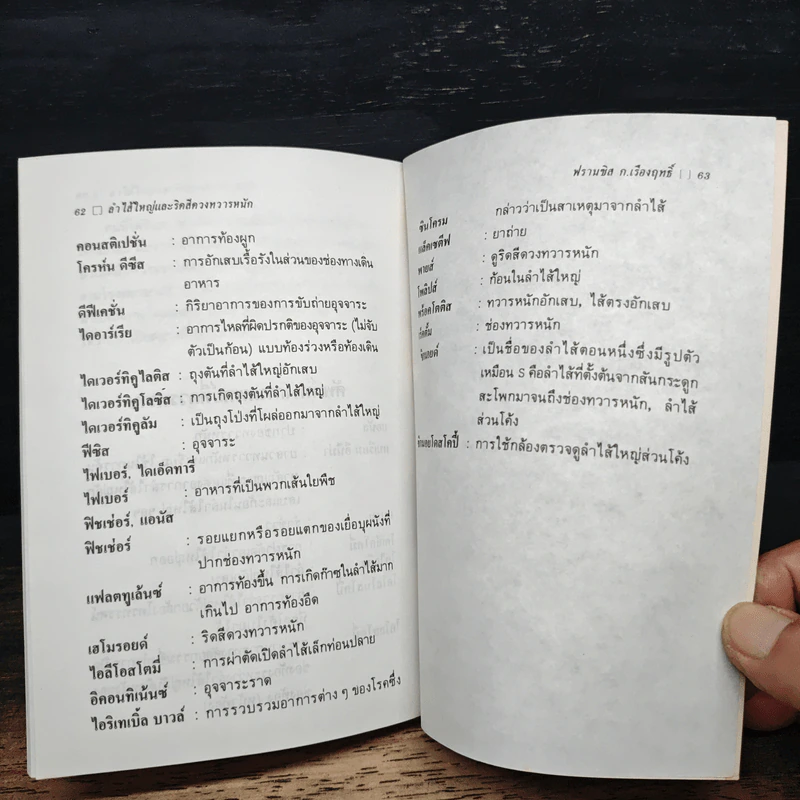 62 □ ลำไส้ใหญ่และริดสีดวงทวารหนัก
คอนสติเปชั่น : อาการท้องผูก
โครห์น ดีซีส : การอักเสบเรื้อรังในส่วนของช่องทางเดิน
อาหาร
ดีฟีเคชั่น : กิริยาอาการของการขับถ่ายอุจจาระ
ไดอาร์เรีย : อาการไหลที่ผิดปรกติของอุจจาระ (ไม่จับ
ตัวเป็นก้อน) แบบท้องร่วงหรือท้องเดิน
ไดเวอร์ทิคูไลติส : ถุงตันที่ลำไส้ใหญ่อักเสบ
ไดเวอร์ทิคูโลซิส : การเกิดถุงตันที่ลำไส้ใหญ่
ไดเวอร์ทิคูลัม : เป็นถุงโป่งที่โผล่ออกมาจากลำไส้ใหญ่
ฟีซิส : อุจจาระ
ไฟเบอร์, ไดเอ็ดทารี่
ไฟเบอร์ : อาหารที่เป็นพวกเส้นใยพืช
ฟิชเช่อร์, แอนัส
ฟิชเช่อร์ : รอยแยกหรือรอยแตกของเยื่อบุผนังที่
ปากช่องทวารหนัก
แฟลตทูเล้นซ์ : อาการท้องขึ้น การเกิดก๊าซในลำไส้มาก
เกินไป อาการท้องอืด
เฮโมรอยด์ : ริดสีดวงทวารหนัก
ไอลีโอสโตมี่ : การผ่าตัดเปิดลำไส้เล็กท่อนปลาย
อิคอนทิเน้นซ์ : อุจจาระราด
ไอริเทเบิ้ล บาวล์ : การรวบรวมอาการต่าง ๆ ของโรคซึ่ง
ฟรานซิส ก.เรืองฤทธิ์ [ ] 63
ซินโครม กล่าวว่าเป็นสาเหตุมาจากลำไส้
แล็คเซตีฟ : ยาถ่าย
พายส์ : ดูริดสีดวงทวารหนัก
โพลิปส์ : ก้อนในลำไส้ใหญ่
พร็อคโตติส : ทวารหนักอักเสบ, ไส้ตรงอักเสบ
: ช่องทวารหนัก
: เป็นชื่อของลำไส้ตอนหนึ่งซึ่งมีรูปตัว
เหมือน S คือลำไส้ที่ตั้งต้นจากสันกระดูก
สะโพกมาจนถึงช่องทวารหนัก, ลำไส้
ส่วนโค้ง
: การใช้กล้องตรวจดูลำไส้ใหญ่ส่วนโค้ง